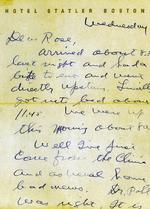 HOTEL STATLER BOSTON
Wednesday
Dear Rose,
Arrived about 8:30
last night and had a
bite to eat and went
directly upstairs. Finally
got into bed about
11:45. We were up
this morning about 8
Well I've just
come from the Clinic
and as usual have
bad news. Dr. Pratt
was right. It is